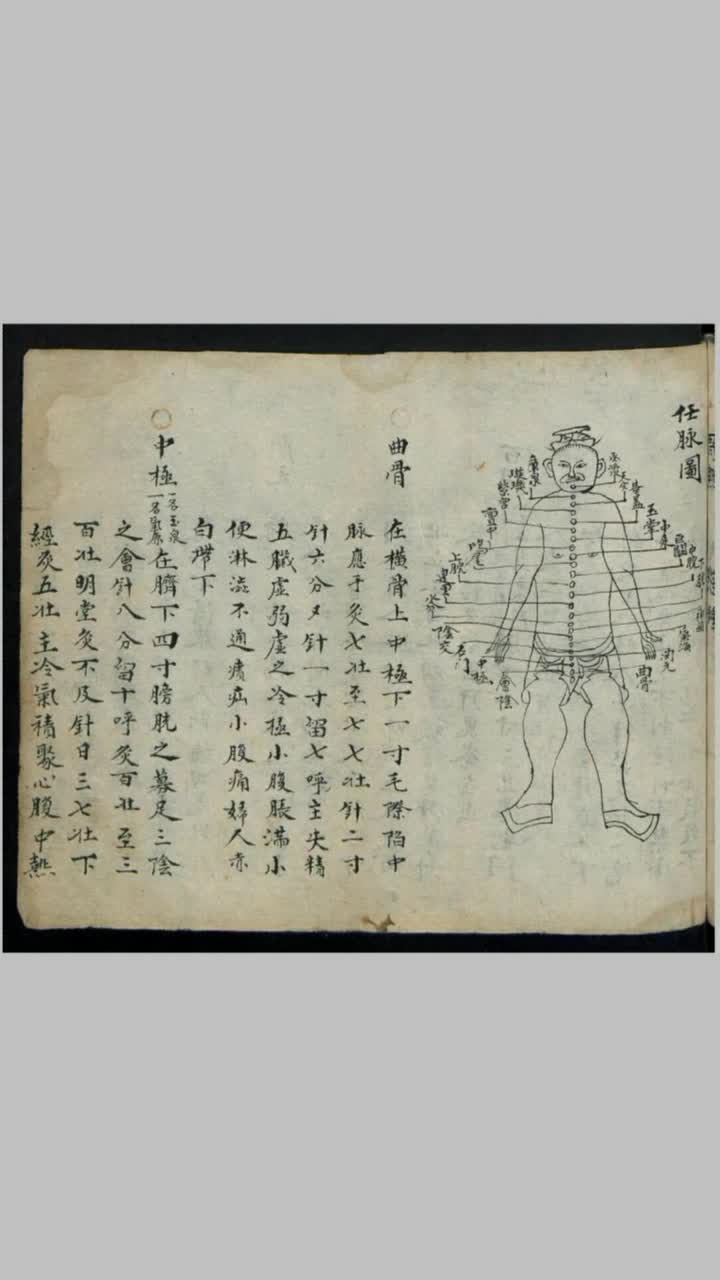 任脉圖
承漿
天突
華蓋
玉堂
中庭
巨闕
中脘
下脘
氣海
曲骨
廉泉
璇璣
紫宫
膻中
鳩尾
上脘
建里
水分
陰交
石门
中極
會陰
曲骨
在横骨上中極下一寸毛際陷中
脉應手灸七壮至七七壮针二寸
针六分又针一寸留七呼主失精
五臟虚弱虚乏冷極小腹脹满小
便淋澁不通㿉疝小腹痛婦人赤
白帶下
中極 一名玉泉 一名氣原 在臍下四寸膀胱之募足三陰
之會针八分留十呼灸百壮至三
百壮明堂灸不及针日三七壮下
經灸五壮主冷氣積聚心腹中熱